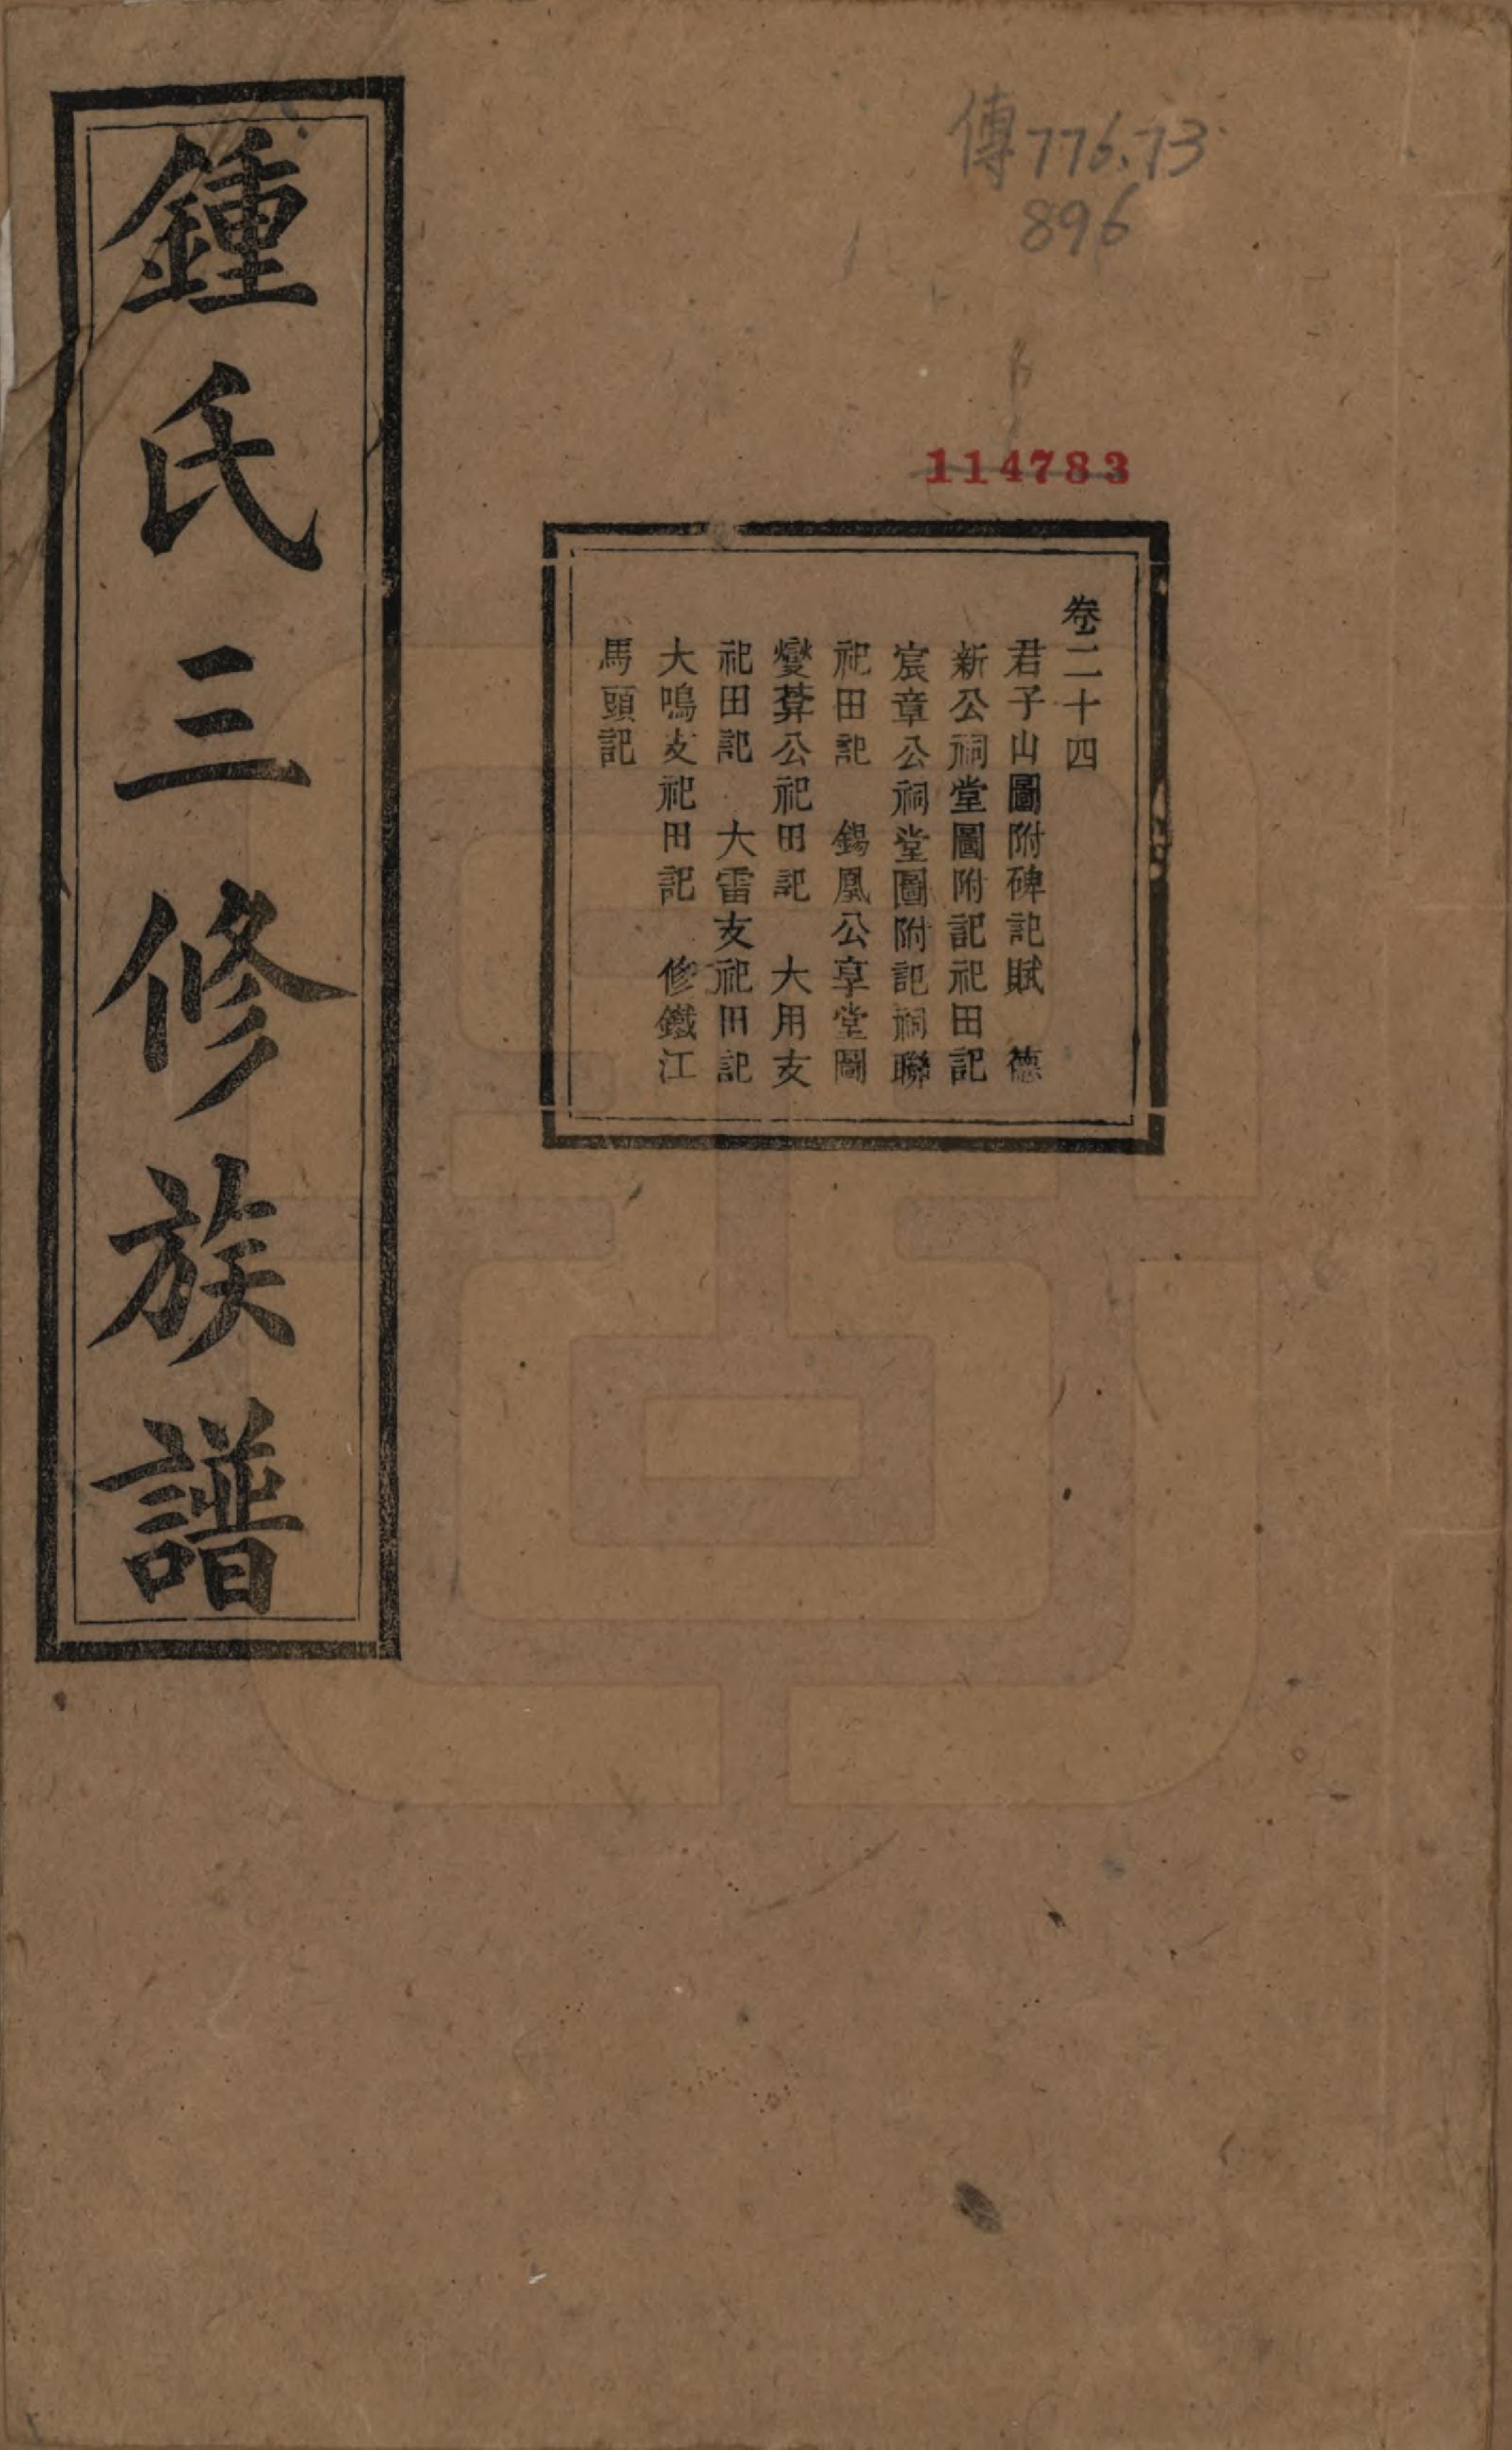 傳776.73
896
114783
卷二十四
君子山圖附碑記賦　德
新公祠堂圖附記祀田記
宸章公祠堂圖附記祠聯
祀田記　錫凰公享堂圖
燮葊公祀田記　大用支
祀田記　大雷支祀田記
大鳴支祀田記　修鐵江
馬頭記
鍾氏三修族譜